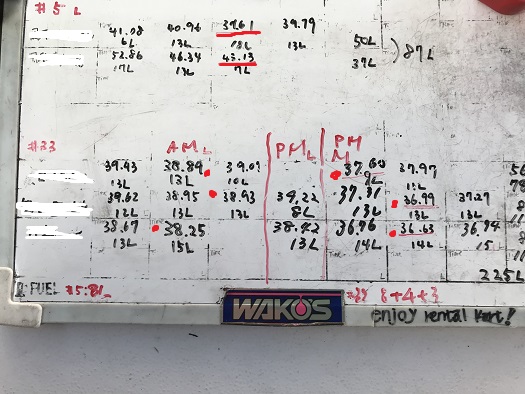 #5 L
41.08 40.96 39.61 39.79
6L 13L 13L 13L 50L
52.86 46.34 43.13 37L ) 87L
17L 13L 7L
#33 AM L PM L PM M
39.43 38.84 39.07 37.60 37.97
13L 13L 10L 9L
39.62 38.95 38.93 39.22 37.31 36.99 37.27
12L 13L 13L 8L 13L 13L 13L
38.67 38.25 38.42 36.96 36.63 36.94
13L 15L 13L 14L 14L 15
225L
FUEL
WAKO'S
8+4+3
enjoy rental kart!